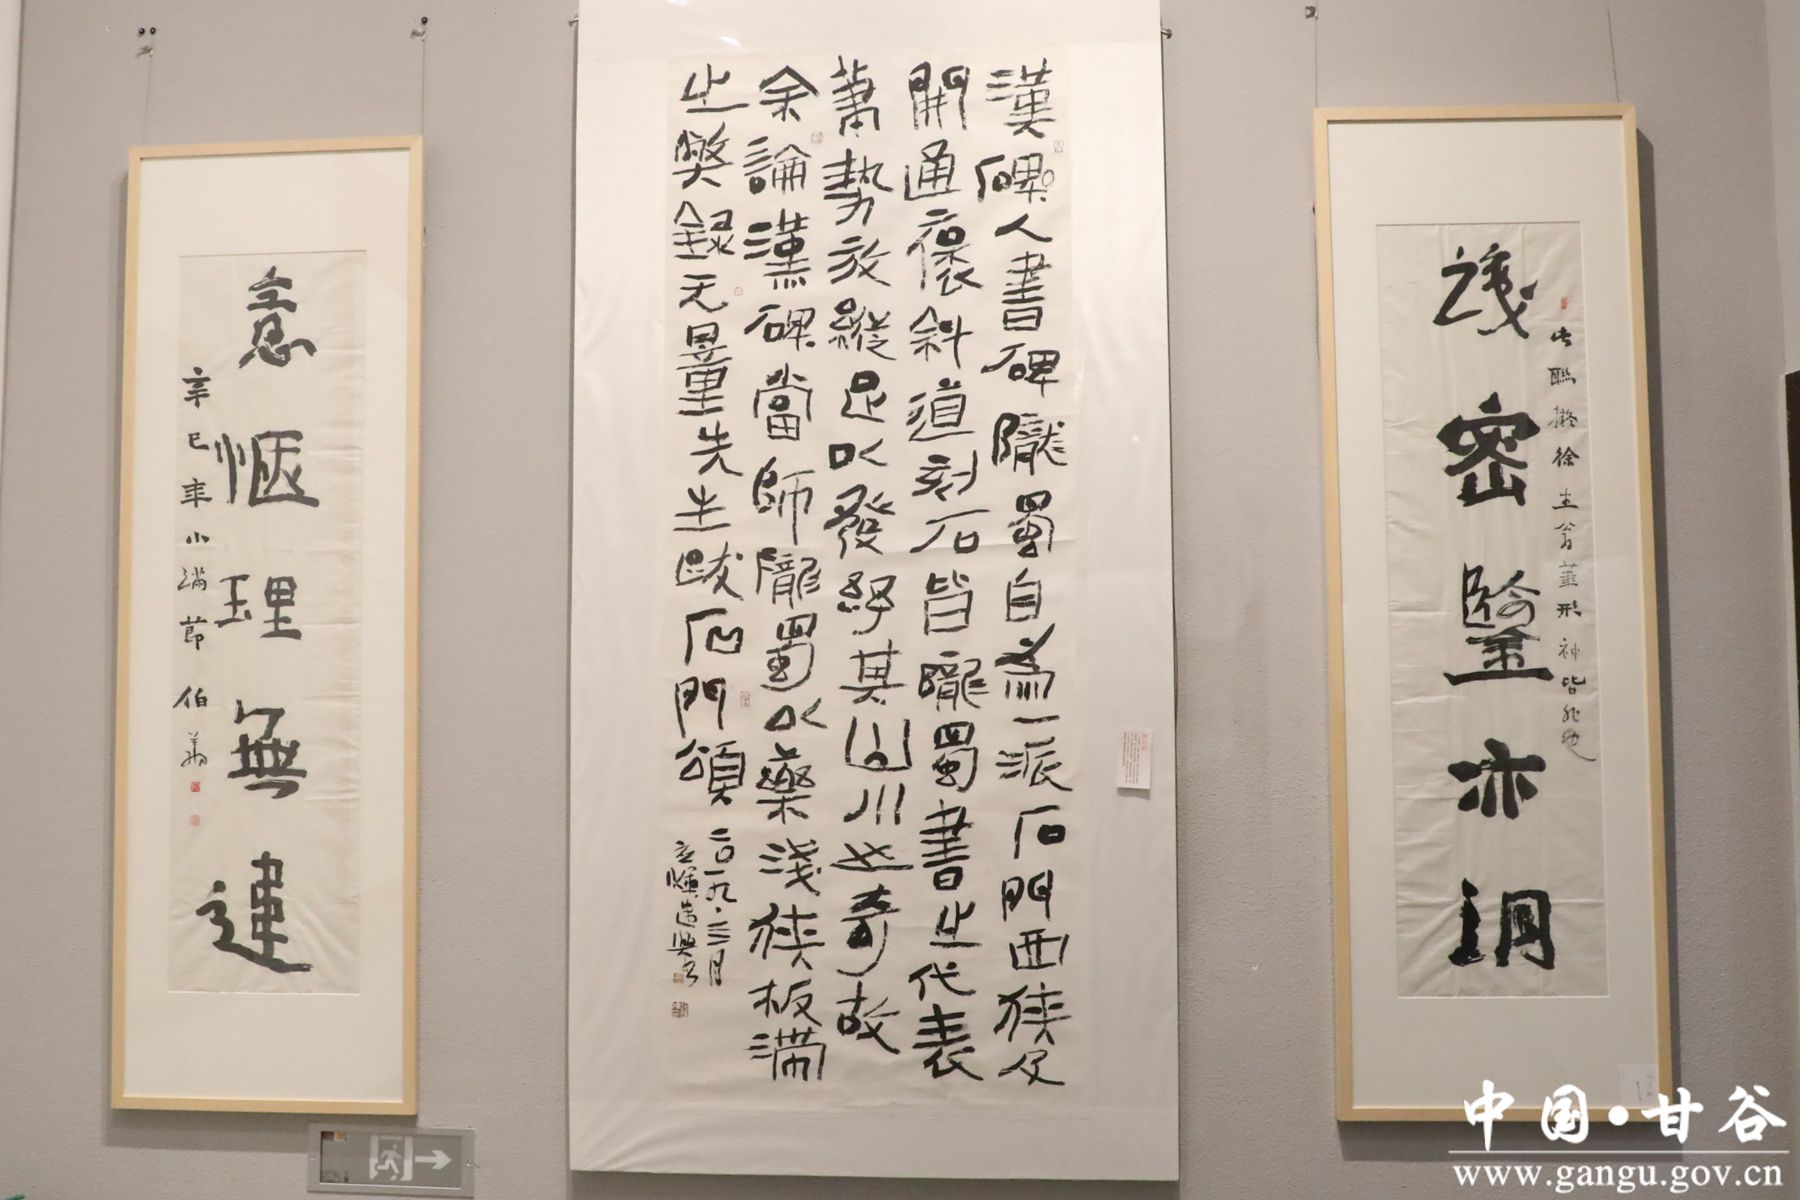 識密鑒亦洞
此聯擬徐生翁筆形神皆非也
漢碑人書碑隴蜀自為一派石門西狹及
開通褒斜道刻石皆隴蜀書之代表
筆勢放縱足以發紓其山川之奇故
余論漢碑當師隴蜀以藥淺狹板滯
之弊錄无量先生跋石門頌
二〇一九.三月
意愜理無違
辛巳年小滿節 伯翔
中国·甘谷
www.gangu.gov.cn